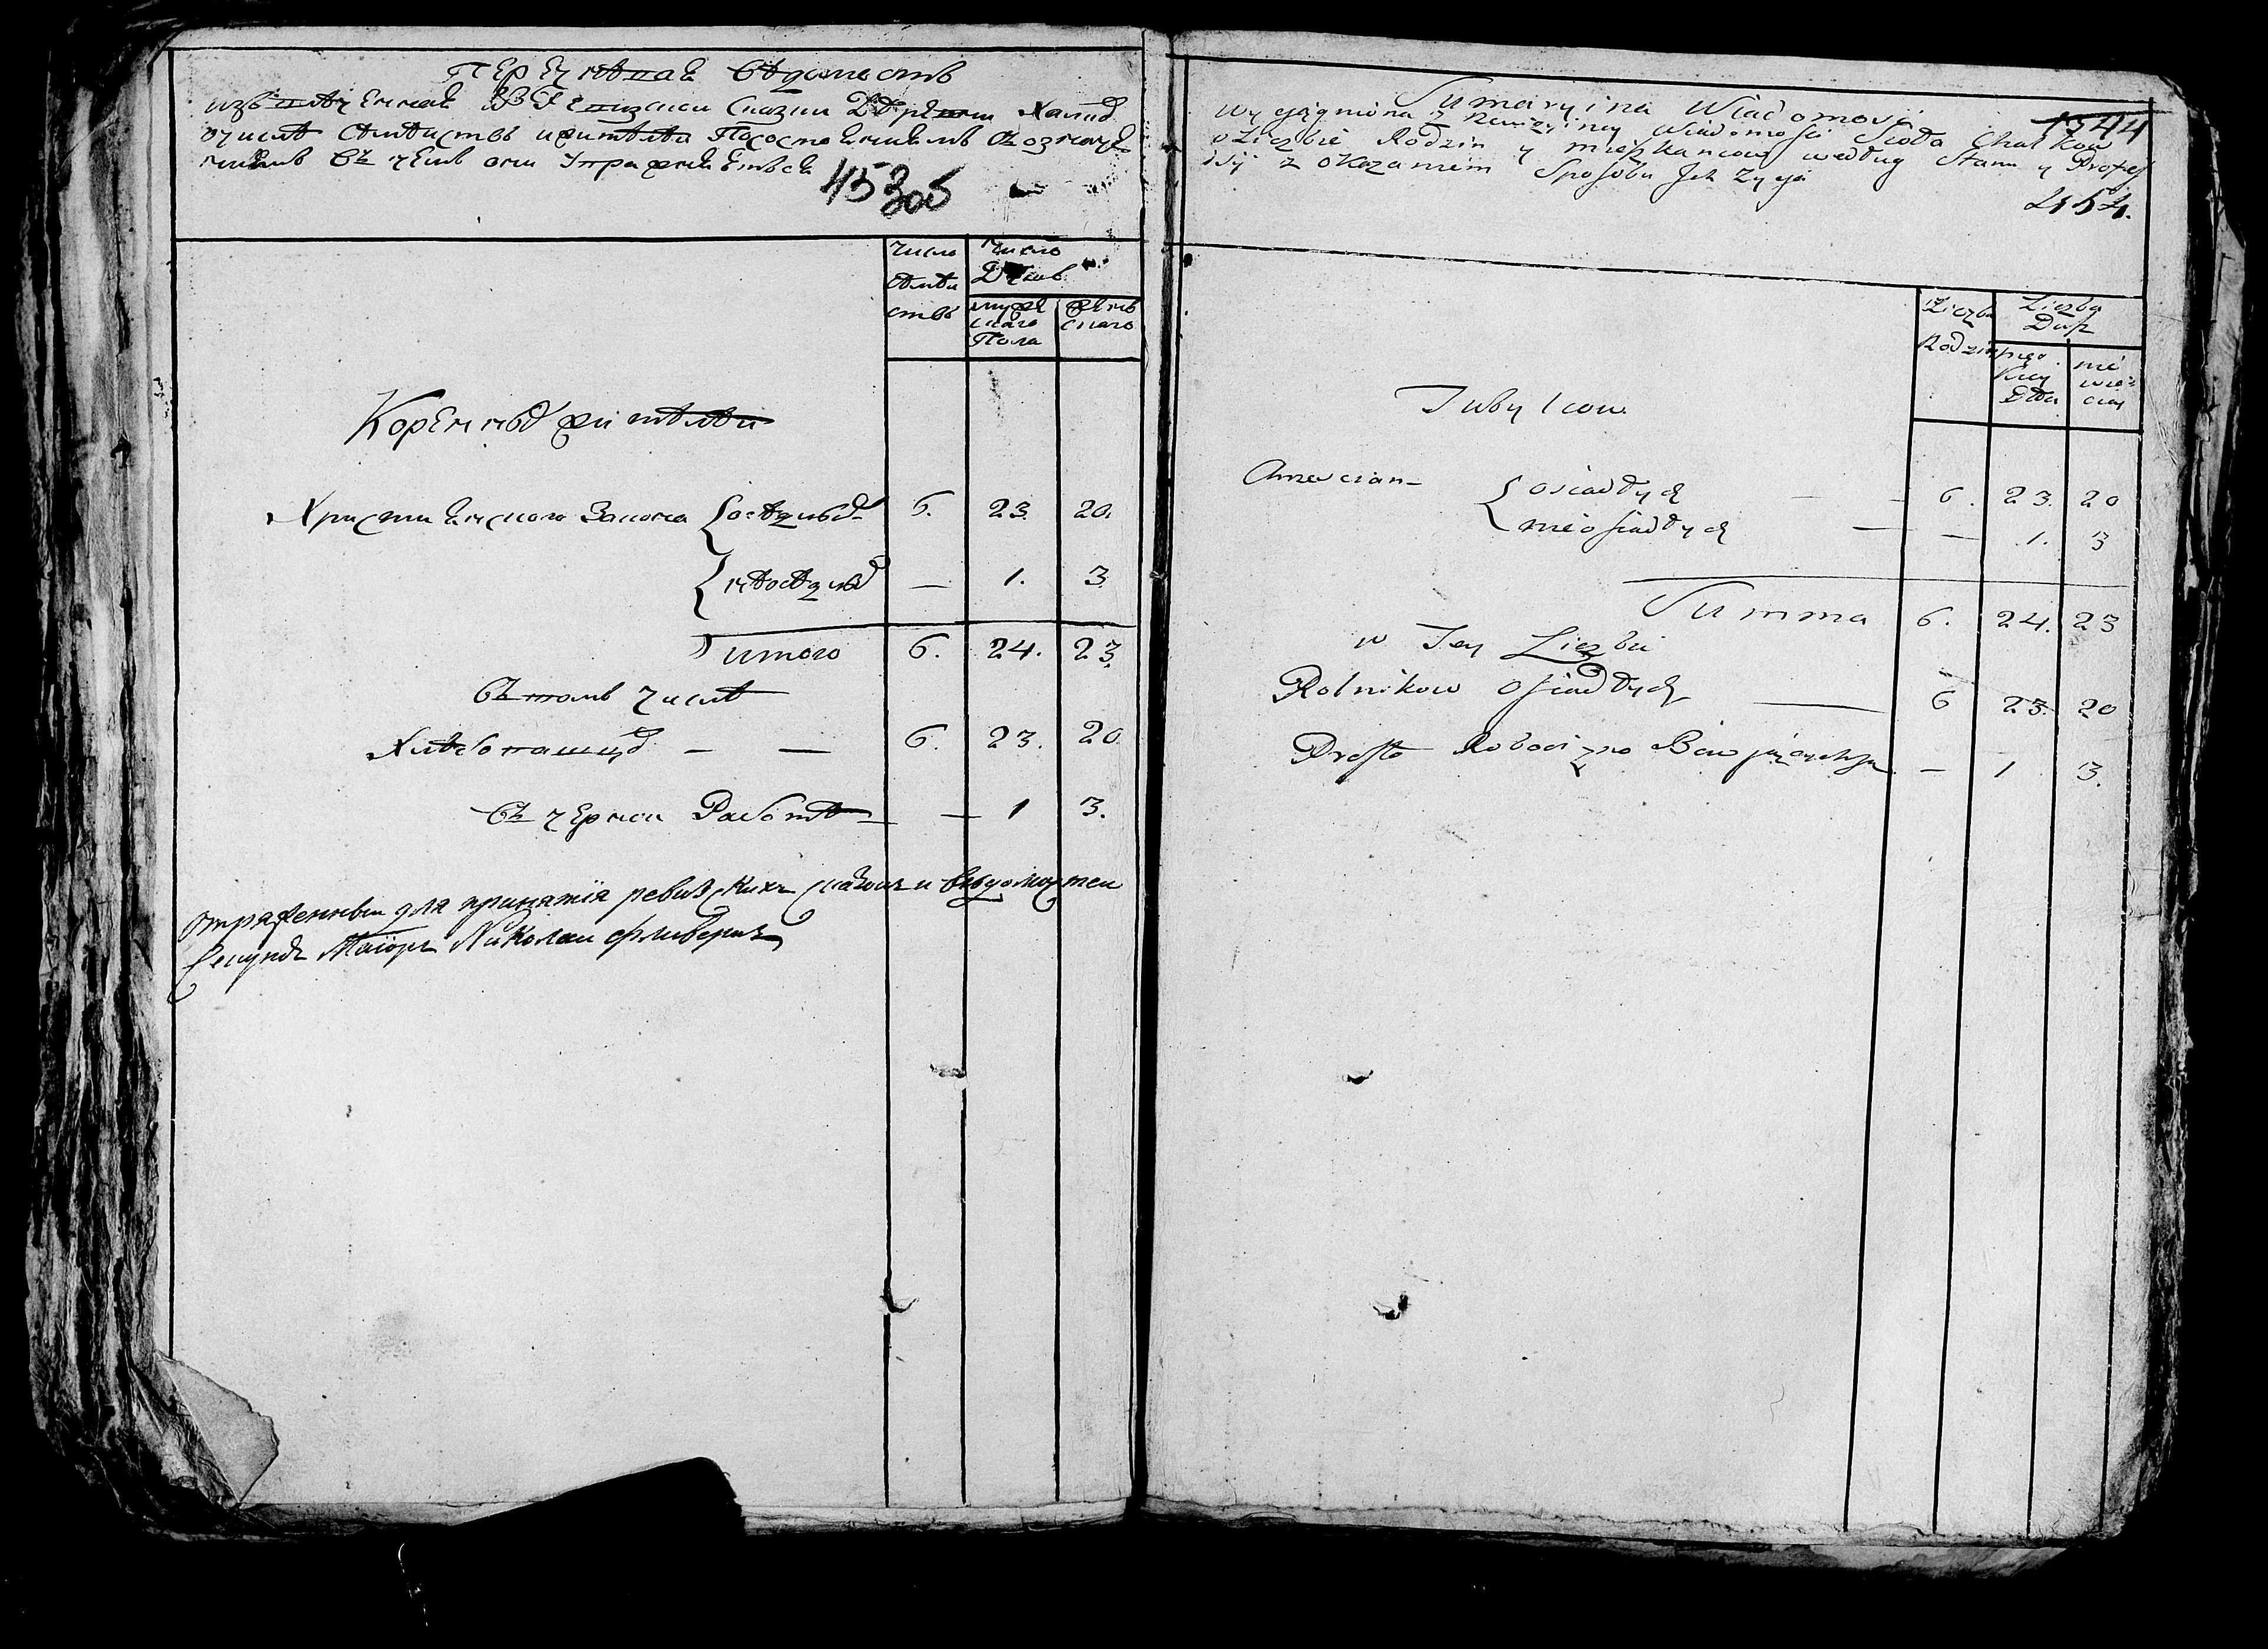 Перечневая ведомость
извлеченная из Ревизской Сказки Деревни
о числе семействъ и жителей по состояниямъ съ означе
ниемъ въ чемъ они упражняются
45306
число семействъ
число Душъ
мужескаго Пола
женскаго
Коренные жители
Християнского Закона { оседлые 6. 23. 20.
{ неоседлые — 1. 3
итого 6. 24. 23.
въ томъ числе
Хлебопашцы — — 6. 23. 20
въ черной Работе — — 1 3.
отряженный для принятія ревизскихъ сказокъ и ведомостей
Секундъ Маіоръ Николай
1544
Sumaryina Wiadomość
wyciągniona z Rewizyiney Wiadomości Sioła Chatkow
o Liczbie Rodzin y mieszkancow według Stanu y Profes
syi z okazaniem Sposobu Ich życia
454.
Liczba Rodzin
Liczba Dusz
męz kiey Płci
nie wie= ściey
Tubylcow
Chrzescian { osiadłych — — 6. 23. 20
{ nieosiadłych — — 1. 3
Summa 6. 24. 23
w Tey Liczbie
Rolnikow osiadłych — 6 23. 20
Prosto Robocizno Bawjących się — 1 3.